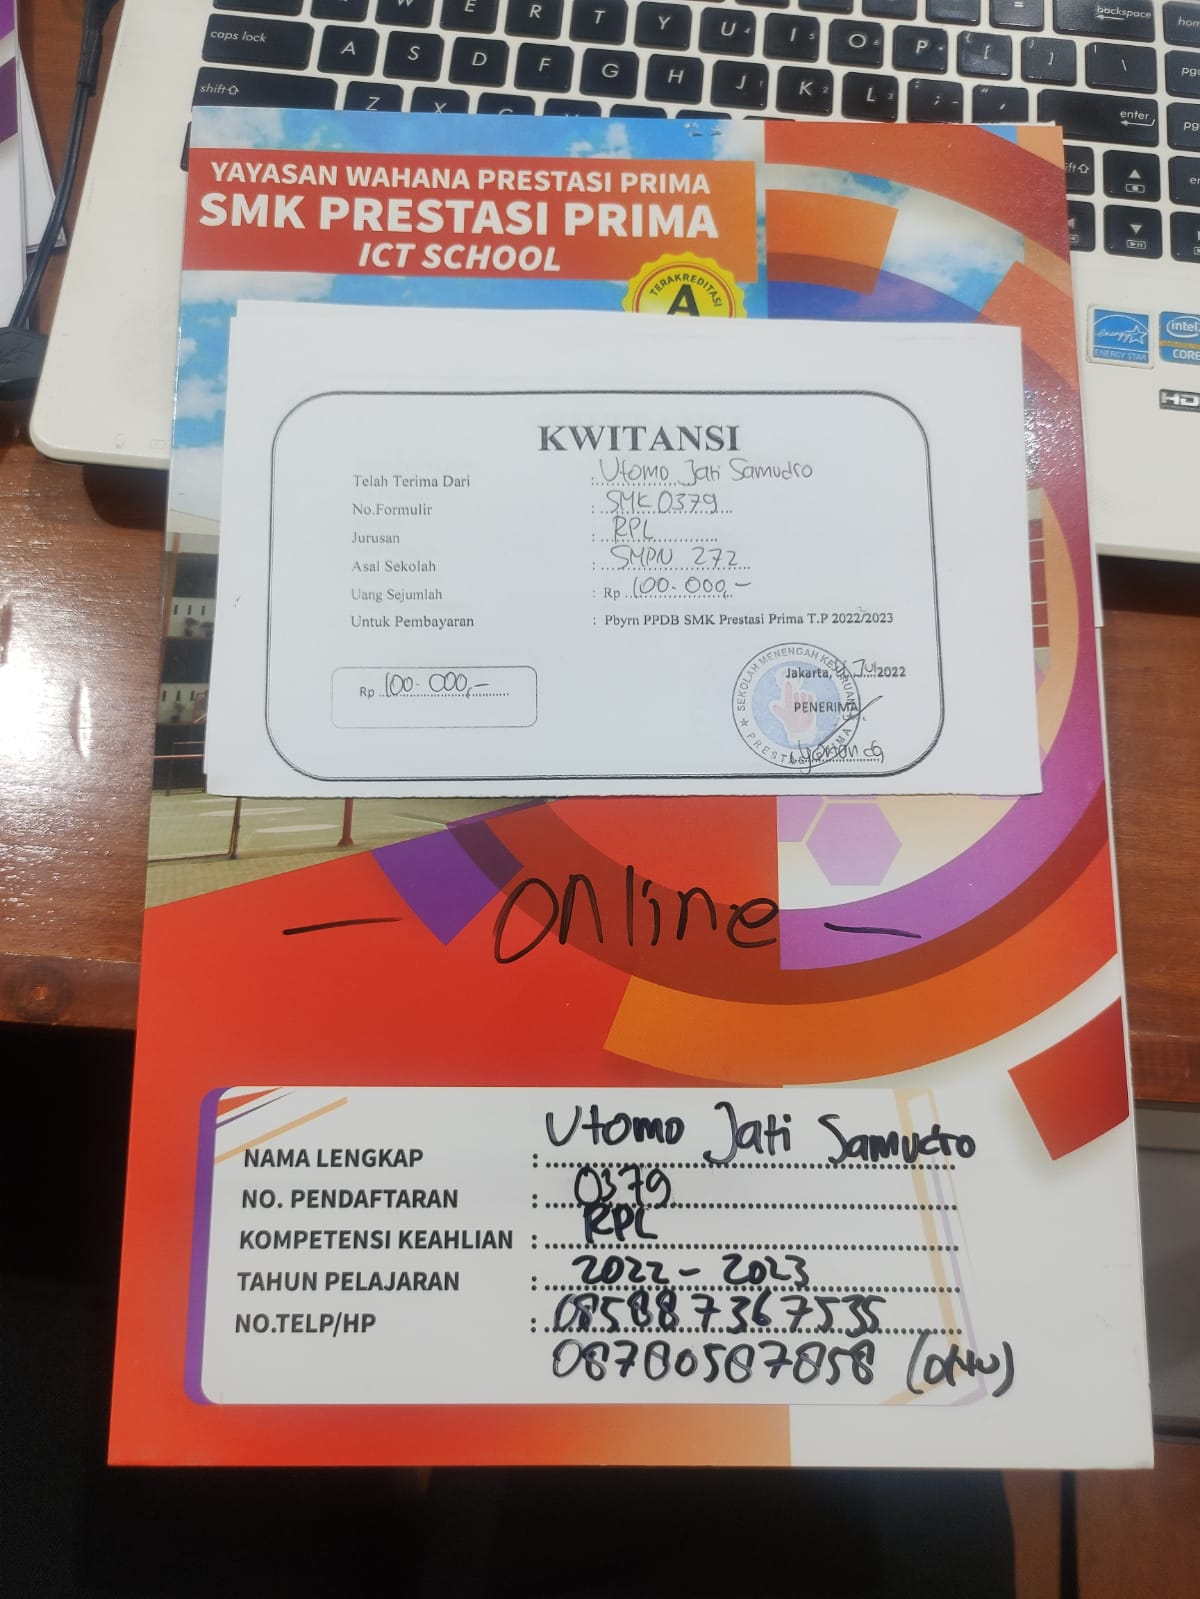 caps lock
W E R T Y U 4 I 5 O 6 P * [ ] \ backspace
A S D F G H J 1 K 2 L 3 enter
shift
Z X
YAYASAN WAHANA PRESTASI PRIMA
SMK PRESTASI PRIMA
ICT SCHOOL
TERAKREDITASI
A
ENERGY STAR
intel
CORE
HD
KWITANSI
Telah Terima Dari : Utomo Jati Samudro
No.Formulir : SMK 0379
Jurusan : RPL
Asal Sekolah : SMPN 272
Uang Sejumlah : Rp 100.000,-
Untuk Pembayaran : Pbyrn PPDB SMK Prestasi Prima T.P 2022/2023
Rp 100.000,-
Jakarta, Jul 2022
PENERIMA
SEKOLAH MENENGAH KEJURUAN
— online —
NAMA LENGKAP : Utomo Jati Samudro
NO. PENDAFTARAN : 0379
KOMPETENSI KEAHLIAN : RPL
TAHUN PELAJARAN : 2022 - 2023
NO.TELP/HP : 085887367535
08780587858